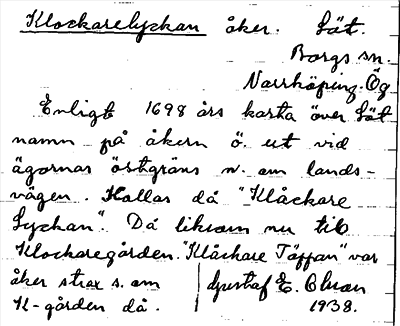 Klockarelyckan åker. Sät.
Borgs sn.
Norrköping. Ög
Enligt 1698 års karta över Sät
namn på åkern ö. ut vid
ägornas östgräns n. om lands-
vägen. Kallas då "Klåckare
Lyckan". Då liksom nu till
Klockaregården. "Klåckare Täppan" var
åker strax s. om
K-gården då.
Gustaf E. Olson
1938.